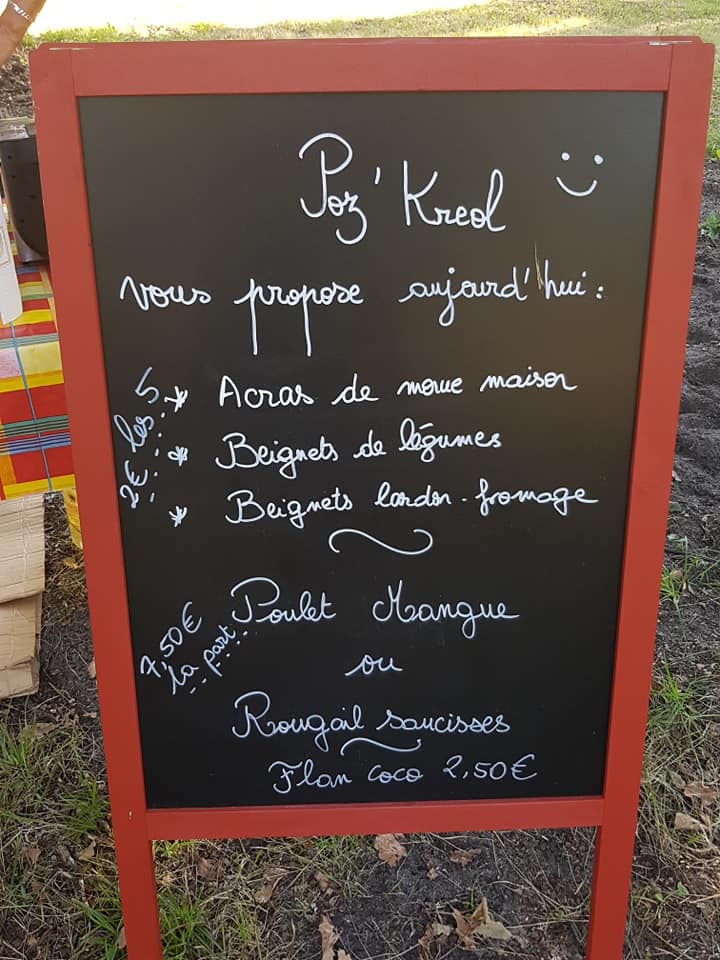 Poz' Kreol
vous propose aujourd'hui :
2€ les 5
* Acras de morue maison
* Beignets de légumes
* Beignets lardon-fromage
7,50€
la part
Poulet Mangue
ou
Rougail saucisses
Flan coco 2,50€